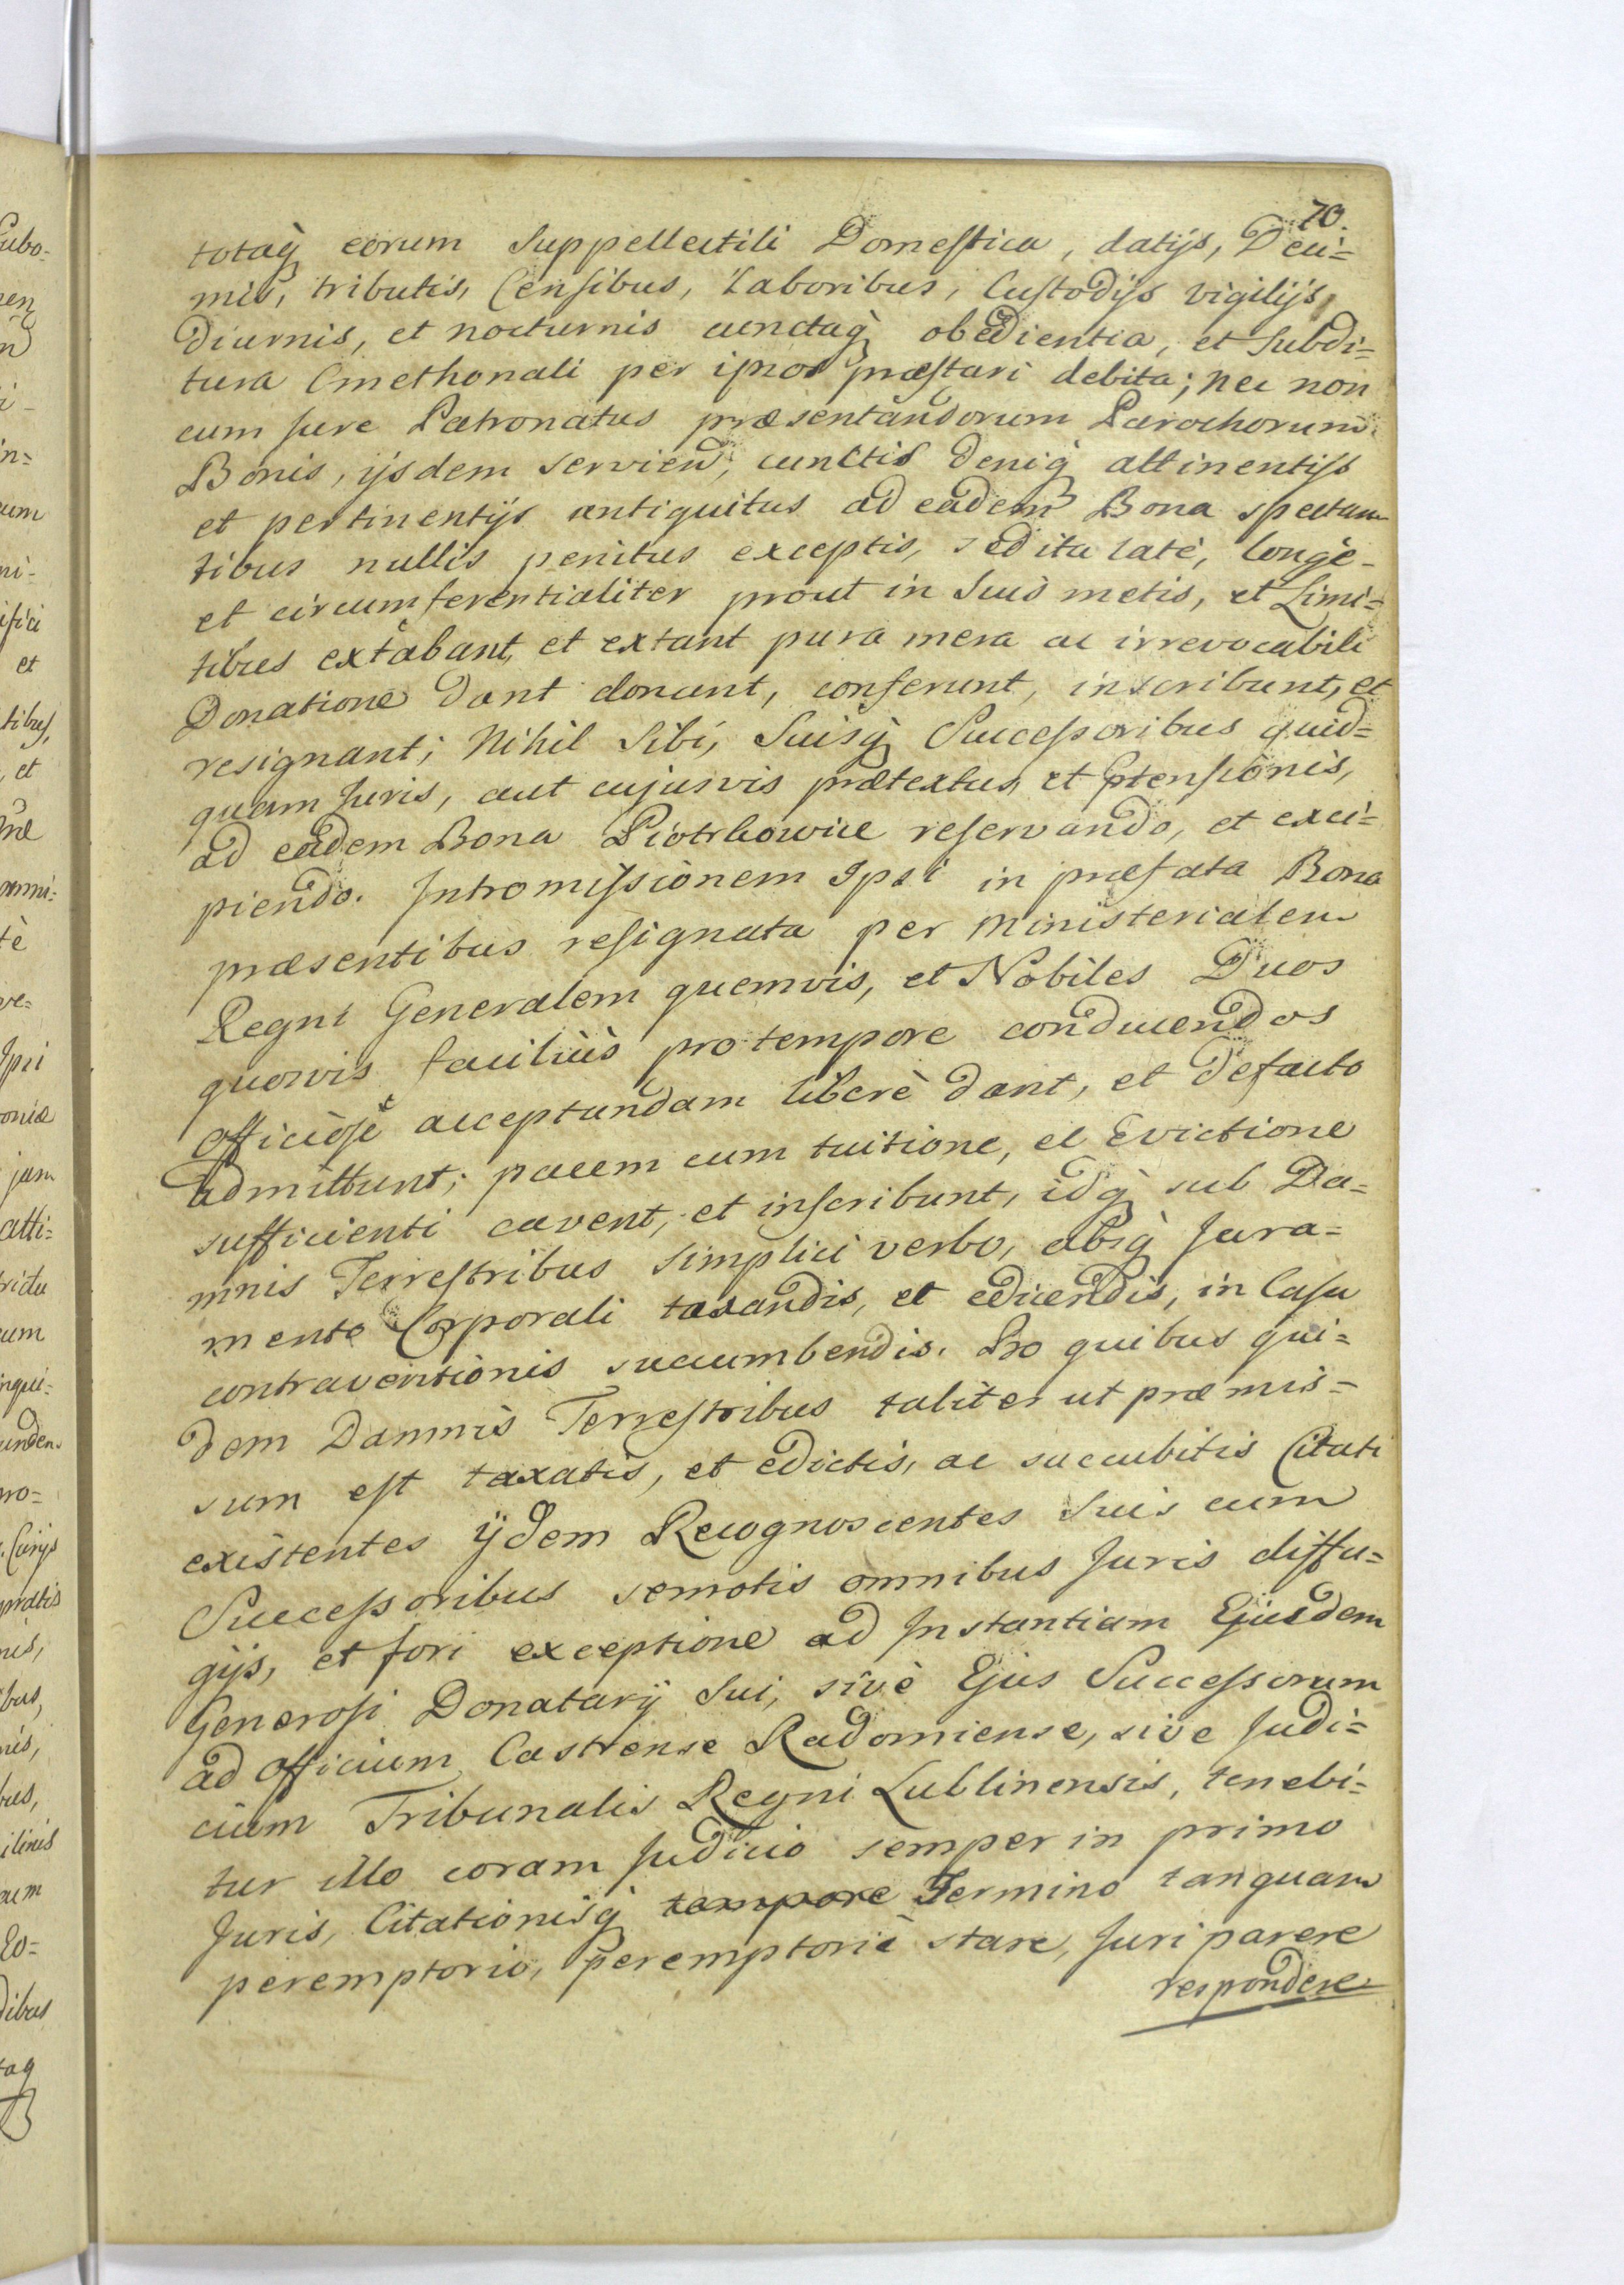 70.
totaq̀ eorum Suppellectili Domestica, datijs, Deci=
mis, tributis, Censibus, Laboribus, Custodijs vigilijs,
Diurnis, et nocturnis cunctaq̀ obedientia, et Subdi=
tura Cmethonali per ipsos præstari debita; nec non
cum Jure Patronatus præsentandorum Parochorum
Bonis, ijsdem servien; cunctis deniq̀ attinentijs
et pertinentijs antiquitus ad eadem Bona spectan
tibus nullis penitus exceptis, sed ita latè, longè-
et circumferentialiter prout in Suis metis, et Limi=
tibus extabant, et extant pura mera ac irrevocabili
Donatione dant donant, conferunt, inscribunt, et
resignant; Nihil Sibi, Suisq̀ Successoribus quid=
quam Juris, aut cujusvis prætextus, et Ptensionis,
ad eadem Bona Piotrkowice reservando, et exci=
piendo. Intromissionem Ipsi in præfata Bona
præsentibus resignata per Ministerialem
Regni Generalem quemvis, et Nobiles Duos
quosvis faciliùs pro tempore conducendos
officiosè acceptandam liberè dant, et defacto
admittunt; pacem cum tuitione, et Evictione
sufficienti cavent, et inscribunt, idq̀ sub Da=
mnis Terrestribus simplici verbo, absq̀ Jura=
mento Corporali taxandis, et edicendis, in Casu
contraventionis succumbendis. Pro quibus qui=
dem Damnis Terrestribus taliter ut præmis=
sum est taxatis, et edictis, ac succubitis Citati
existentes ijdem Recognoscentes Suis cum
Successoribus semotis omnibus Juris diffu=
gijs, et fori exceptione ad Instantiam Ejusdem
Generosi Donatarij Sui, sivè Ejus Successorum
ad officium Castrense Radomiense, sive Judi=
cium Tribunalis Regni Lublinensis, tenebi=
tur illo coram Judicio semper in primo
Juris, Citationisq̀ tempore Termino tanquam
peremptorio, peremptoriè stare, Juri parere
respondere